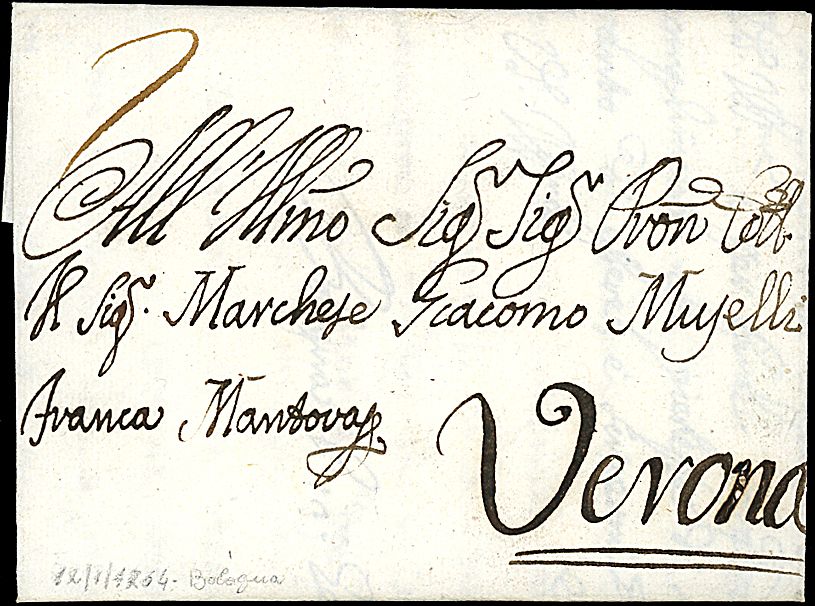 All' Illmo Sigr Sigr Pron Coll.
Il Sigr. Marchese Giacomo Muselli
Franca Mantova p
Verona
12/1/1764 - Bologna